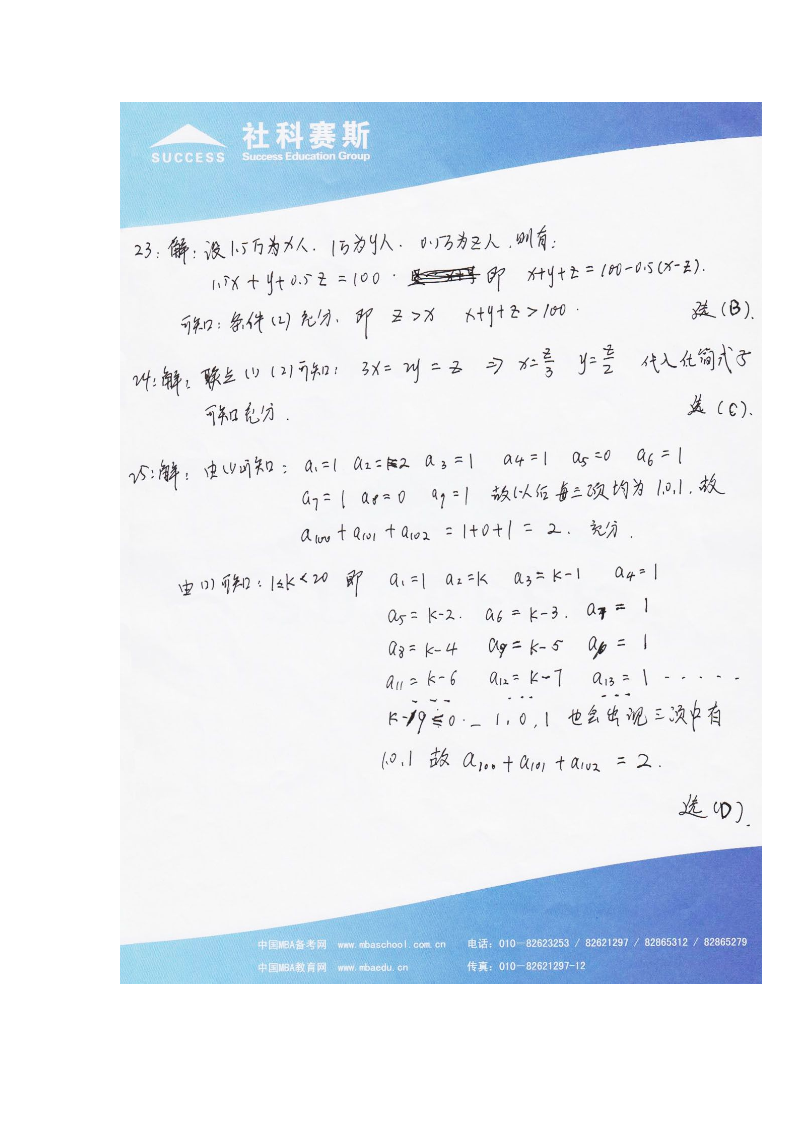 社科赛斯
SUCCESS
Success Education Group
23: 解: 设1.5万为x人. 1万为y人. 0.5万为z人, 则有:
1.5x + y + 0.5z = 100. 即 x+y+z = 100-0.5(x-z).
可知: 条件(2)充分, 即 z>x x+y+z>100. 选(B).
24: 解: 联立(1)(2)可知: 3x = 2y = z ⇒ x=z/3 y=z/2 代入化简式子
可知充分. 选(C).
25: 解: 由(1)可知: a1=1 a2=2 a3=1 a4=1 a5=0 a6=1
a7=1 a8=0 a9=1 故以后每三项均为1,0,1, 故
a100+a101+a102 = 1+0+1 = 2. 充分.
由(2)可知: 1≤k<20 即 a1=1 a2=k a3=k-1 a4=1
a5=k-2. a6=k-3. a7=1
a8=k-4 a9=k-5 a10=1
a11=k-6 a12=k-7 a13=1 ......
k-19≤0. 1,0,1 也会出现三项中有
1,0,1 故 a100+a101+a102 = 2.
选(D).
中国MBA备考网 www.mbaschool.com.cn 电话: 010-82623253 / 82621297 / 82865312 / 82865279
中国MBA教育网 www.mbaedu.cn 传真: 010-82621297-12